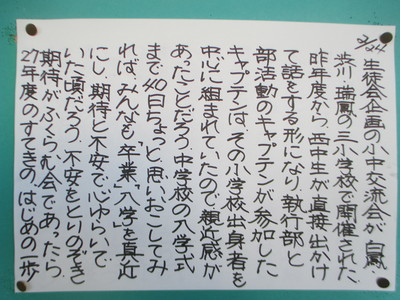 2/24
生徒会企画の小中交流会が白鳳
渋川瑞鳳の三小学校で開催された、
昨年度から、西中生が直接出かけ
て話をする形になり、執行部と
部活動のキャプテンが参加した
キャプテンは、その小学校出身者を
中心に組まれていたので、親近感が
あったことだろう。中学校の入学式
まで40日ちょっと。思いおこしてみ
れば、みんなも「卒業」「入学」を真近
にし、期待と不安で心ゆらいで
いた頃だろう。不安をとりのぞき
期待がふくらむ会であったら、
27年度のすてきのはじめの一歩